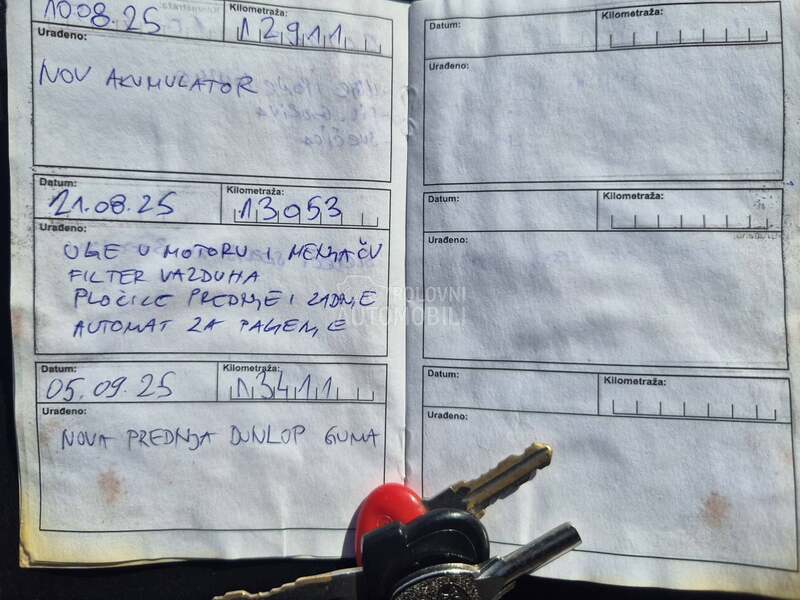 10.08.25
Kilometraža:
12911
Urađeno:
NOV AKUMULATOR
Datum:
21.08.25
Kilometraža:
13053
Urađeno:
ULJE U MOTORU I MENJAČU
FILTER VAZDUHA
PLOČICE PREDNJE I ZADNJE
AUTOMAT ZA PALJENJE
Datum:
05.09.25
Kilometraža:
13411
Urađeno:
NOVA PREDNJA DUNLOP GUMA
Datum:
Kilometraža:
Urađeno:
Datum:
Kilometraža:
Urađeno:
Datum:
Kilometraža:
Urađeno:
POLOVNI
AUTOMOBILI